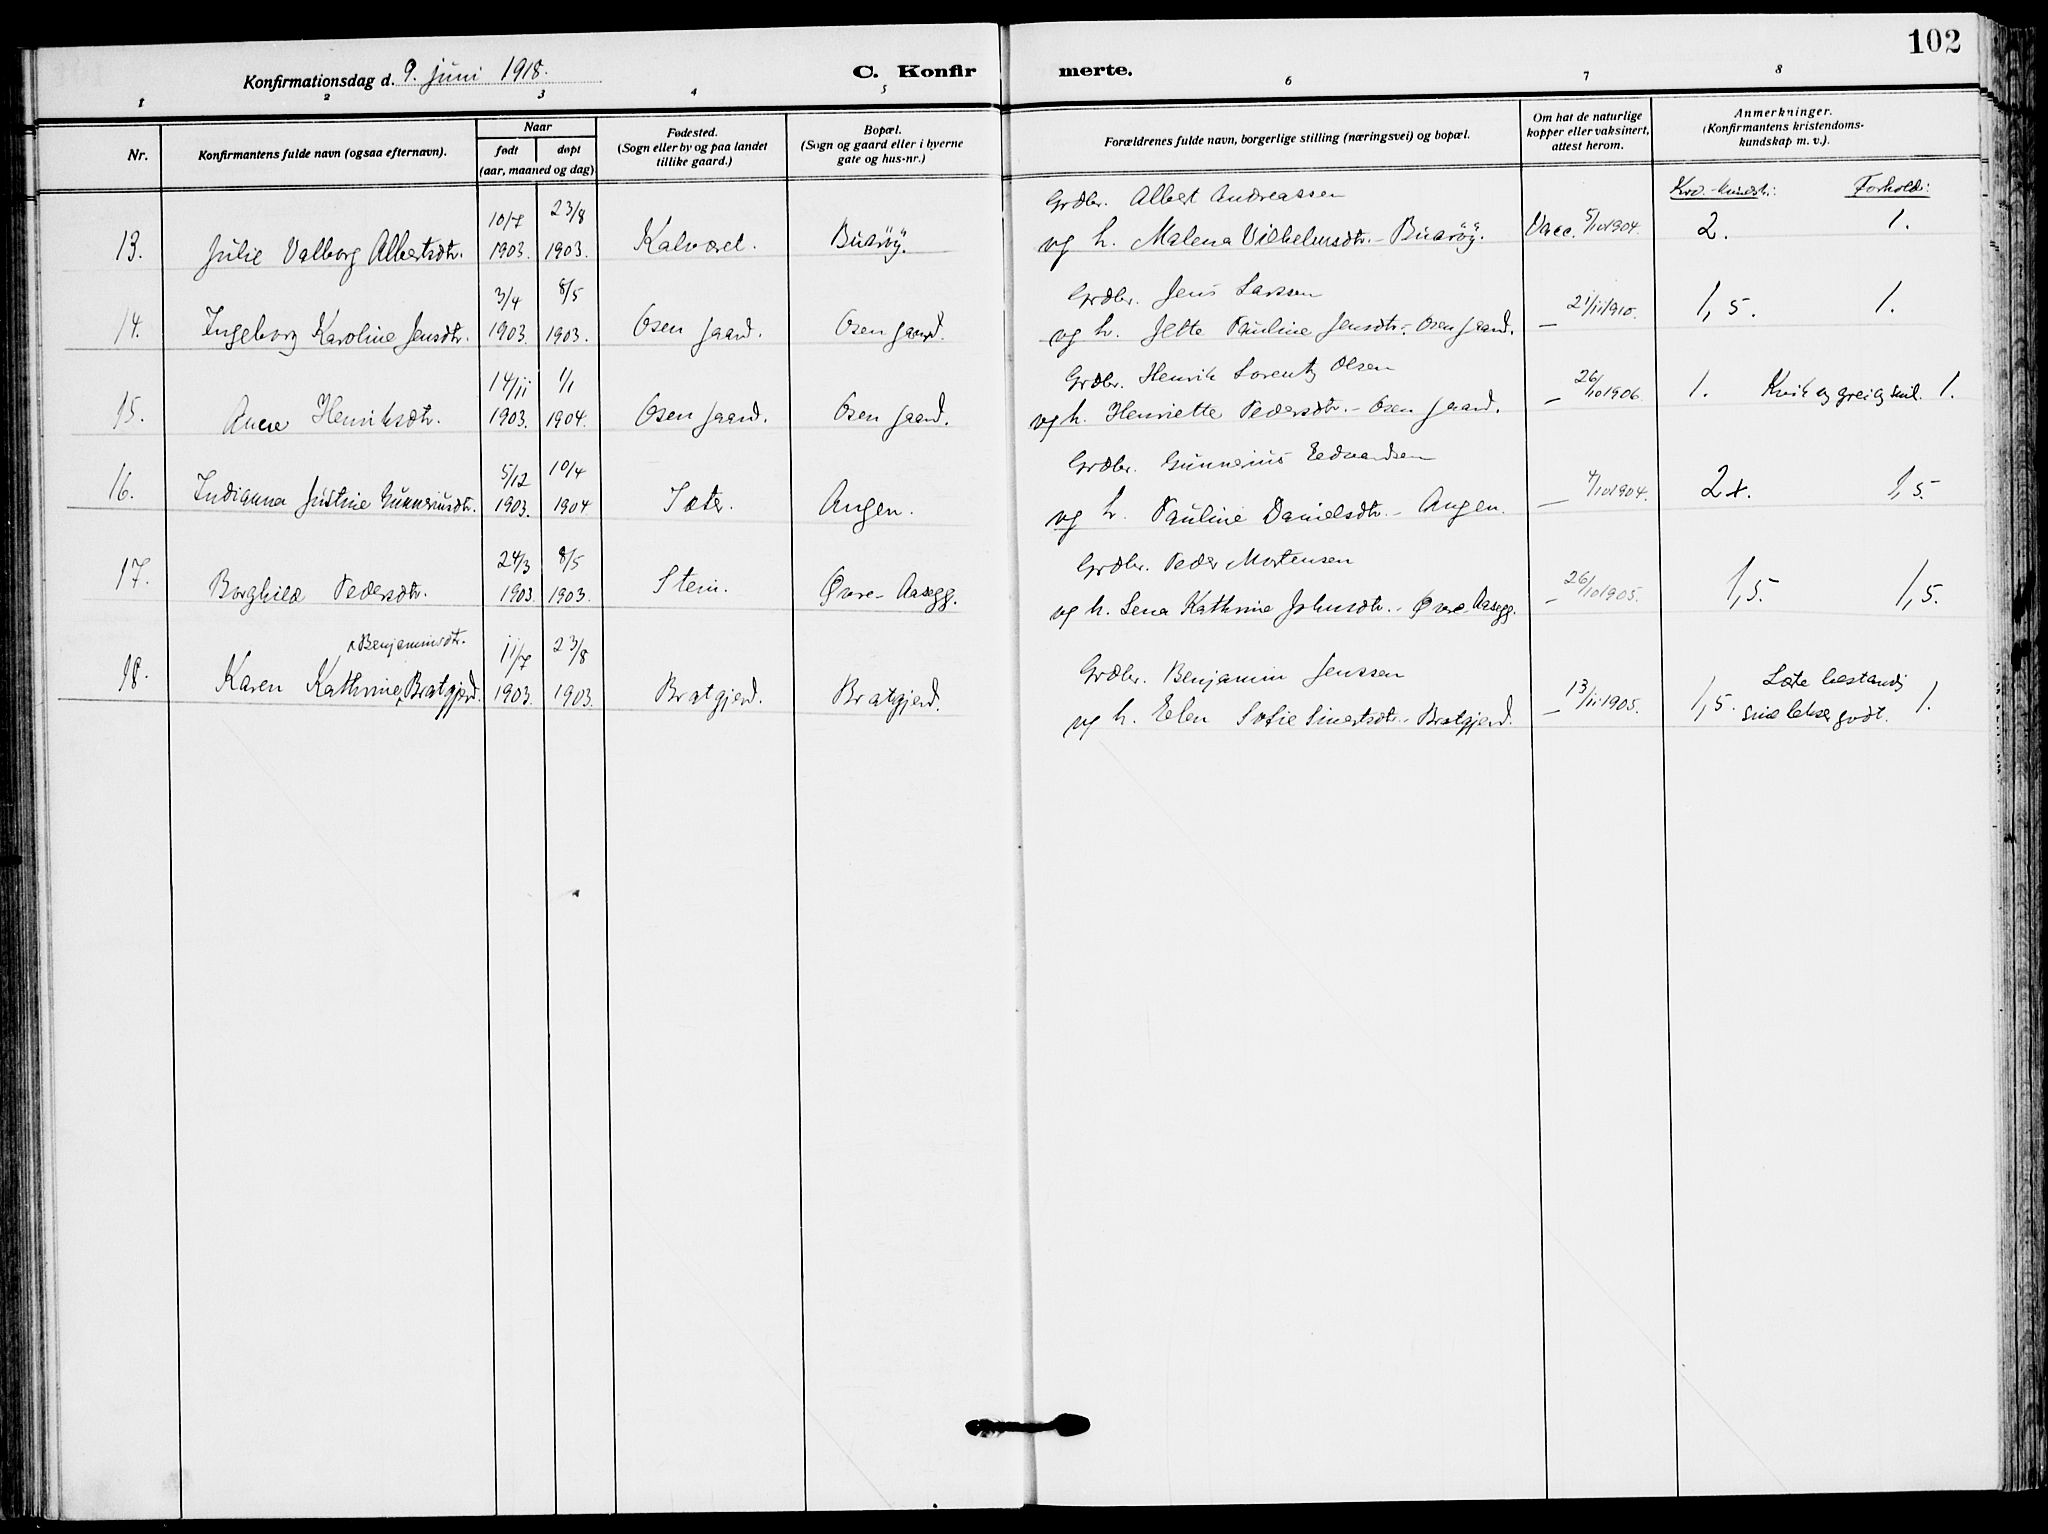 102
Konfirmationsdag d. 9. juni 1918.
C. Konfir merte.
1 2 3 4 5 6 7 8
Nr.
Konfirmantens fulde navn (ogsaa efternavn).
Naar
født
døpt
(aar, maaned og dag)
Fødested.
(Sogn eller by og paa landet
tillike gaard.)
Bopæl.
(Sogn og gaard eller i byerne
gate og hus-nr.)
Forældrenes fulde navn, borgerlige stilling (næringsvei) og bopæl.
Om hat de naturlige
kopper eller vaksinert,
attest herom.
Anmerkninger.
(Konfirmantens kristendoms-
kundskap m. v.).
Forhold:
10/7 23/8 Grdbr. Albert Andreassen
13. Julie Valborg Albertsdtr. 1903. 1903. Kalværet. Buarøÿ. og h. Malena Vilhelmsdtr. - Buarøÿ. Vacc. 5/10 1904. 2. 1.
3/4 8/5 Grdbr. Jens Larssen
14. Ingeborg Karoline Jensdtr. 1903. 1903. Osen gaard. Osen gaard. og h. Jette Pauline Jensdtr. - Osen gaard. — 21/11 1910. 1,5. 1.
14/11 1/1 Grdbr. Henrik Lorentz Olsen
15. Anna Henriksdtr. 1903. 1904. Osen gaard. Osen gaard. og h. Henriette Pedersdtr. - Osen gaard. — 26/10 1906. 1. Kvik og grei og snil. 1.
5/12 10/4 Grdbr. Gunnerius Edvardsen
16. Indianna Justine Gunneriusdtr. 1903. 1904 Sæter. Angen. og h. Pauline Danielsdtr. - Angen. — 4/10 1904. 2 x. 1,5.
24/3 8/5 Grdbr. Peder Mortensen
17. Borghild Pedersdtr. 1903. 1903. Stein. Øvre - Aasegg. og h. Lena Kathrine Johnsdtr. - Øvre - Aasegg. — 26/10 1905. 1,5. 1,5.
Benjaminsdtr. 11/7 23/8 Grdbr. Benjamin Jenssen
18. Karen Kathrine Bratgjerd. 1903. 1903. Bratgjerd. Bratgjerd. og h. Elen Sofie Sivertsdtr. - Bratgjerd. — 13/11 1905. 1,5. Læste bestandig sine lekser godt. 1.